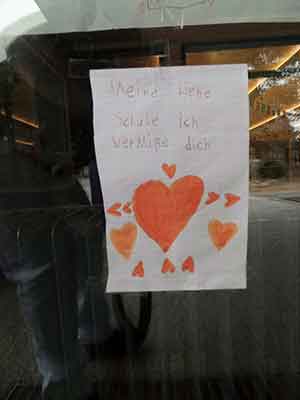 Meine liebe
Schule ich
vermiße dich